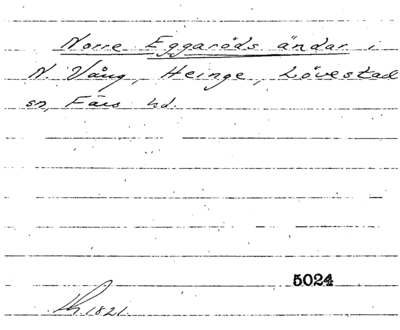 Norre Eggaröds ändar i
N. Vång, Heinge, Lövestad
sn, Färs hd.
5024
1821